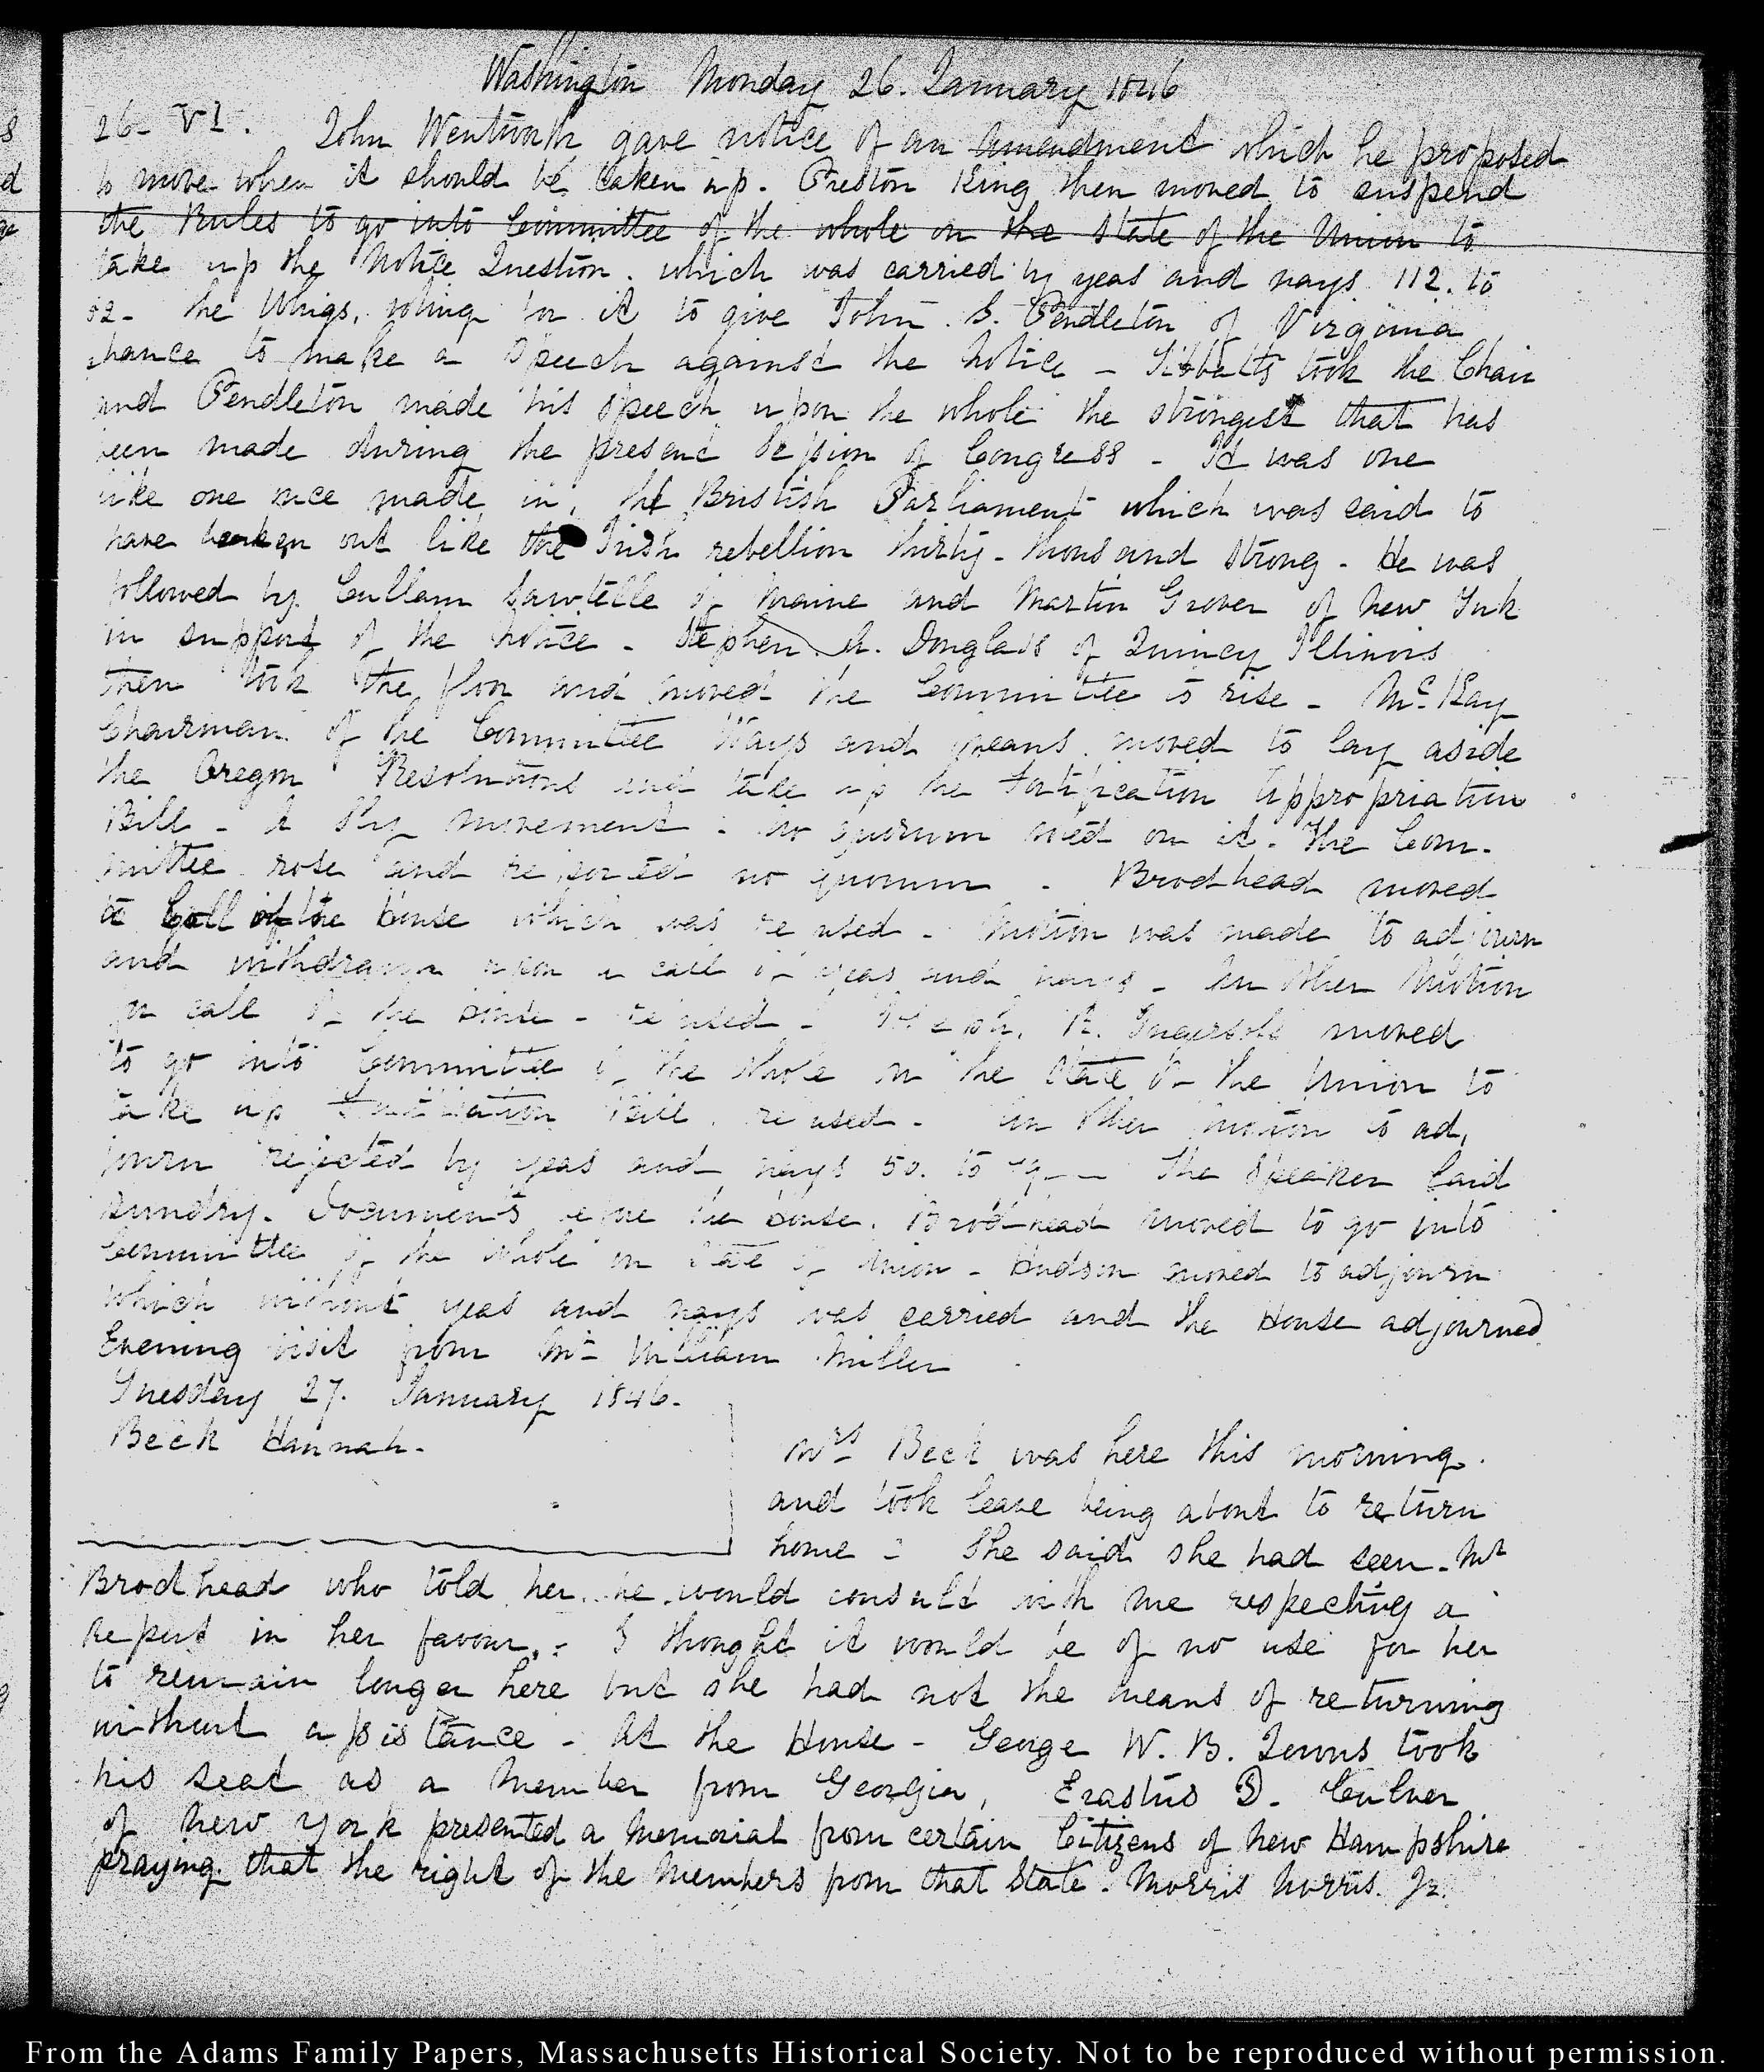 Washington Monday 26. January 1846
26- VI. John Wentworth gave notice of an amendment which he proposed
to move when it should be taken up. Preston King then moved to suspend
the Rules to go into Committee of the whole on the state of the Union to
take up the Notice Question. which was carried by yeas and nays 112. to
the Whigs, voting for it to give John S. Pendleton of Virginia
chance to make a speech against the Notice - Tibbatts took the Chair
and Pendleton made his speech upon the whole the strongest that has
been made during the present Session of Congress - It was one
like one once made in the Bristish Parliament which was said to
have broken out like the Irish rebellion thirty-thousand strong - He was
followed by Cullam Sawtelle of Maine and Martin Grover of New York
in support of the Notice - Stephen A. Douglass of Quincy Illinois
then took the floor and moved the Committee to rise - Mc. Kay
Chairman of the Committee Ways and means moved to lay aside
the Oregon Resolutions and take up the Fortification Appropriation
Bill - A Sly movement - no quorum voted on it. The Com-
mittee rose and reported no quorum - Brodhead moved
a Call of the House which was refused - Motion was made to adjourn
and withdrawn upon a call of yeas and nays - Another Motion
for call of the House - refused - Joseph R. Ingersoll moved
to go into Committee of the Whole on the State of the Union to
take up Fortification Bill. refused - Another motion to ad,
journ rejected by yeas and nays 50. to 79 - The Speaker laid
sundry. Documents before the House. Brodhead moved to go into
Committee of the Whole on State of Union - Hudson moved to adjourn
which without yeas and nays was carried and the House adjourned
Evening visit from Mr William Miller
Tuesday 27. January 1846.
Beck Hannah.
Mrs Beck was here this morning.
and took leave being about to return
home - She said she had seen Mr
Brodhead who told her he would consult with me respecting a
report in her favour. - I thought it would be of no use for her
to remain longer here but she had not the means of returning
without assistance - At the House - George W. B. Towns took
his seat as a Member from Georgia, Erastus D. Culver
of New York presented a Memorial from certain Citizens of New Hampshire
praying that the right of the Members from that State. Morris Norris. Jr.
From the Adams Family Papers, Massachusetts Historical Society. Not to be reproduced without permission.